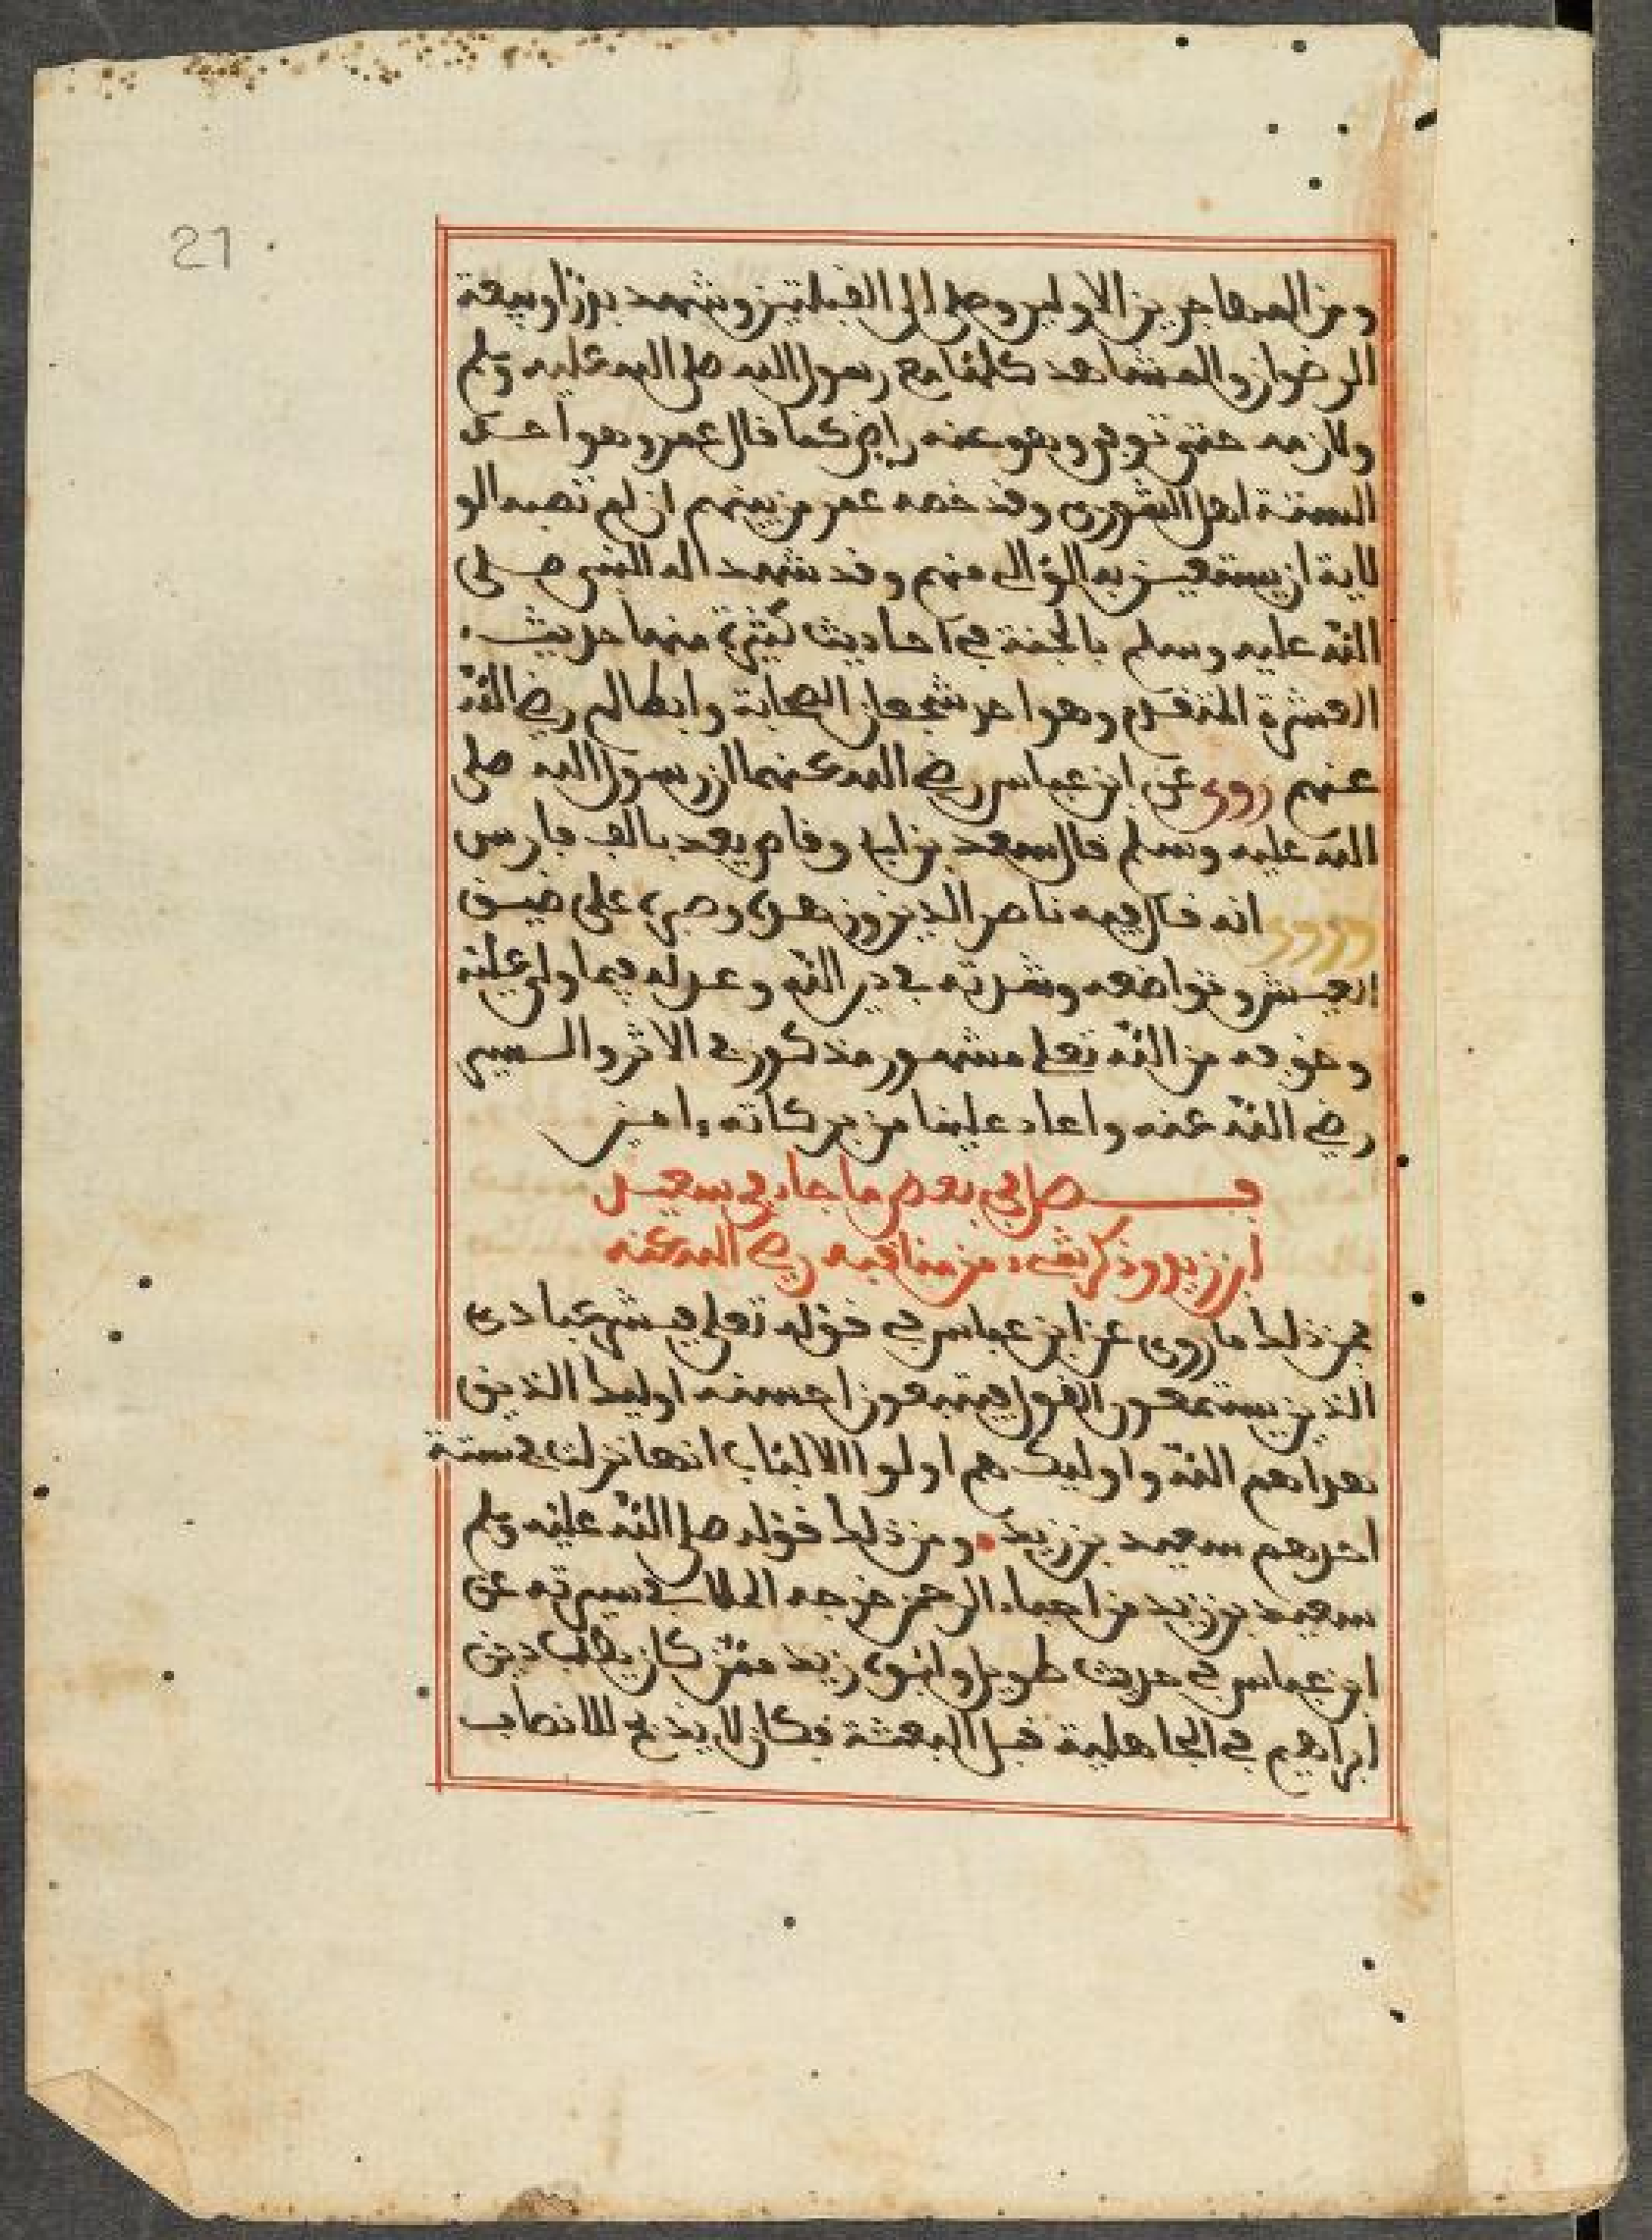 27
ومن المهاجرين الاولين وصلى الى القبلتين وشهد بدرا وبيعة
الرضوان والمشاهد كلها مع رسول الله صلى الله عليه وسلم
ولازمه حتى توفي وهو عنه راض كما قال عمر وهو احد
الستة اهل الشورى وقد خصه عمر من بينهم ان لم تصبه الو
لاية ان يستعين به الوالي منهم وقد شهد له النبي صلى
الله عليه وسلم بالجنة في احاديث كثيرة منها حديث
العشرة المتقدم وهو احد شجعان الصحابة وابطالهم رضي الله
عنهم روي عن ابن عباس رضي الله عنهما ان رسول الله صلى
الله عليه وسلم قال سعد بن ابي وقاص يعد بالف فارس
وروي انه قال فيه ناصر الدين وزهده وصبره على ضيق
العيش وتواضعه وشدته في دين الله وعدله فيما ولي عليه
وخوفه من الله تعلى مشهور مذكور في الاثر والسير
رضي الله عنه واعاد علينا من بركاته ءامين
فصل في بعض ما جاء في سعيد
ابن زيد وذكر شيء من مناقبه رضي الله عنه
فمن ذلك ما روي عن ابن عباس في قوله تعلى فبشر عبادي
الذين يستمعون القول فيتبعون احسنه اوليك الذين
هداهم الله واوليك هم اولوا الالباب انها نزلت في ستة
احدهم سعيد بن زيد ومن ذلك قوله صلى الله عليه وسلم
سعيد بن زيد من احباء الرحمن خرجه الملا في سيرته عن
ابن عباس في حديث طويل وابوه زيد ممن كان يطلب دين
ابراهيم في الجاهلية قبل البعثة فكان لا يذبح للانصاب